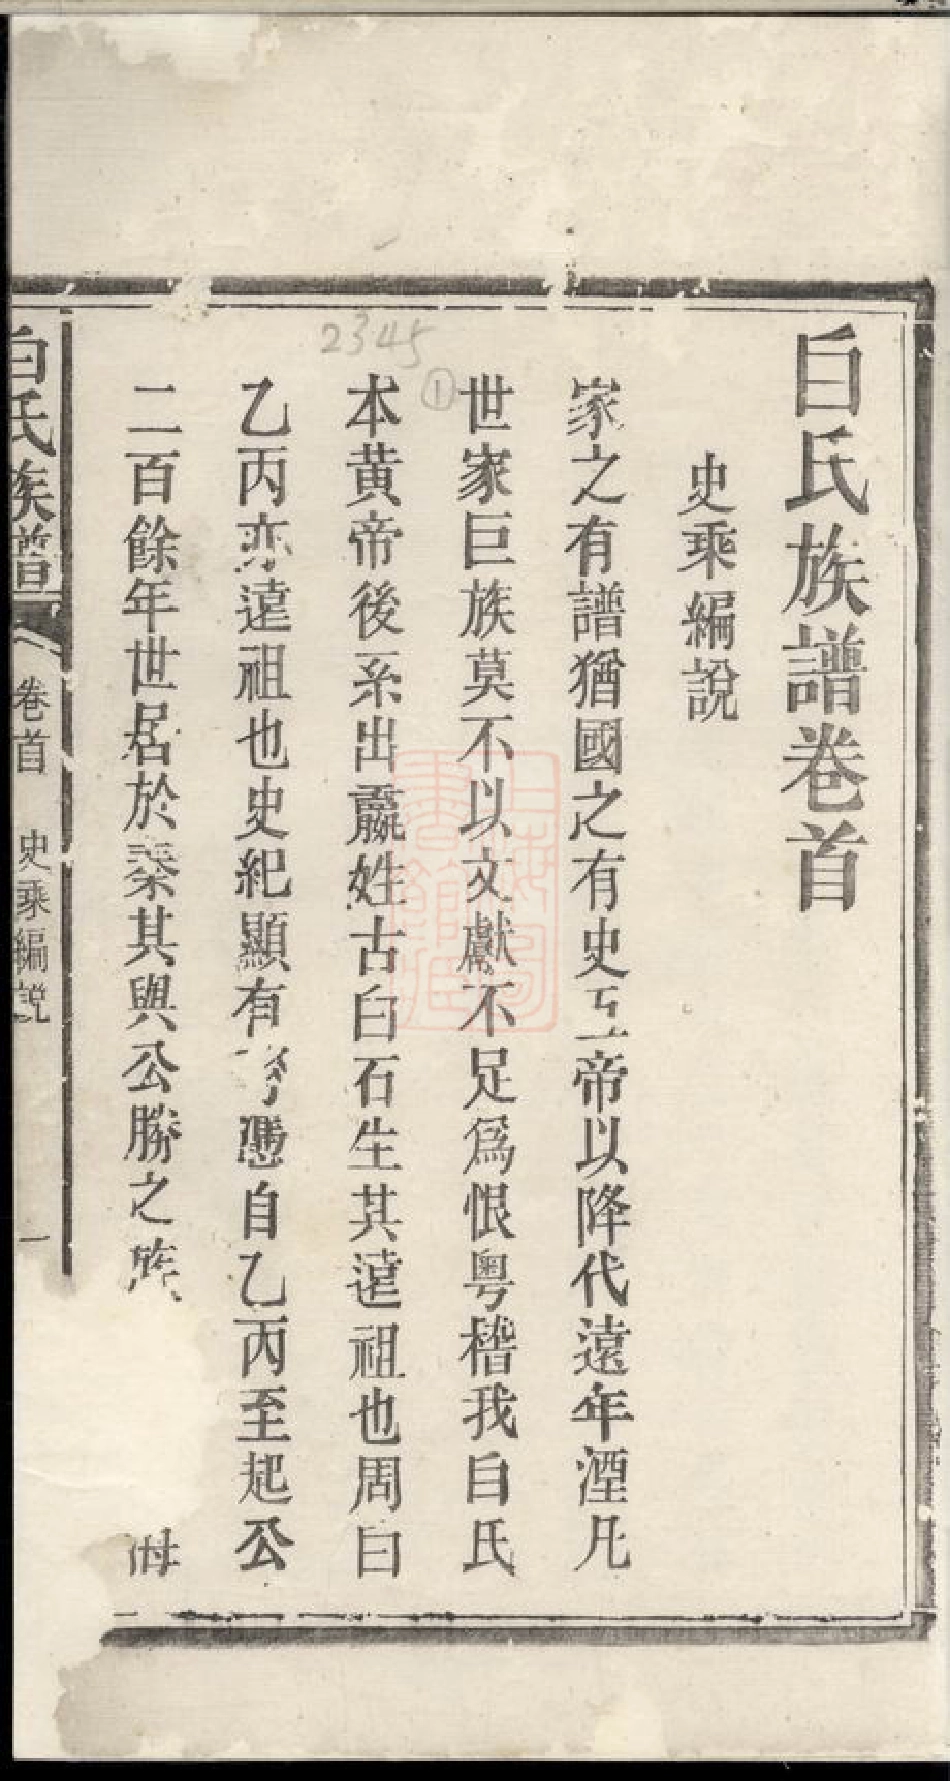 白氏族譜卷首
史乘編說
家之有譜猶國之有史五帝以降代遠年湮凡
世家巨族莫不以文獻不足爲恨粤稽我白氏
本黄帝後系出嬴姓古白石生其遠祖也周白
乙丙亦遠祖也史紀顯有可憑自乙丙至起公
二百餘年世居於秦其與公勝之族
白氏族譜
卷首
史乘編說
一
2345
①
上海圖書館藏